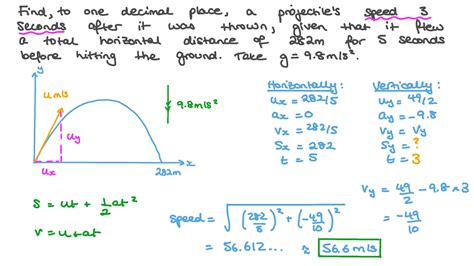 Find, to one decimal place, a projectile's speed 3
seconds after it was thrown, given that it flew
a total horizontal distance of 282m for 5 seconds
before hitting the ground. Take g = 9.8m/s².
y
u m/s
uy
ux
x
282m
9.8m/s²
Horizontally:
ux = 282/5
ax = 0
vx = 282/5
Sx = 282
t = 5
Vertically:
uy = 49/2
ay = -9.8
vy = vy
Sy = ?
t = 3
S = ut + 1/2 at²
v = u+at
speed = √((282/5)² + (-49/10)²)
= 56.612... ≈ 56.6 m/s
vy = 49/2 - 9.8 × 3
= -49/10